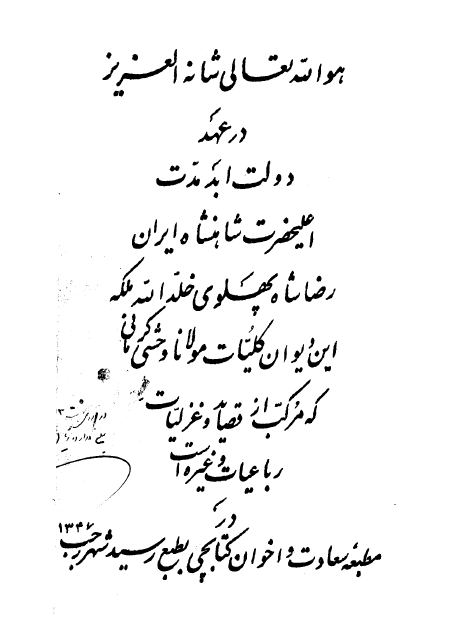 هو الله تعالی شانه العزیز
در عهد
دولت ابد مدت
اعلیحضرت شاهنشاه ایران
رضا شاه پهلوی خلّد الله ملکه
این دیوان کلیّات مولانا وحشی کرمانی
که مرکّب از قصاید و غزلیّات
رباعیات و غیره است
در
مطبعهٔ سعادت و اخوان کتابچی بطبع رسید شهر رجب ۱۳۴۶